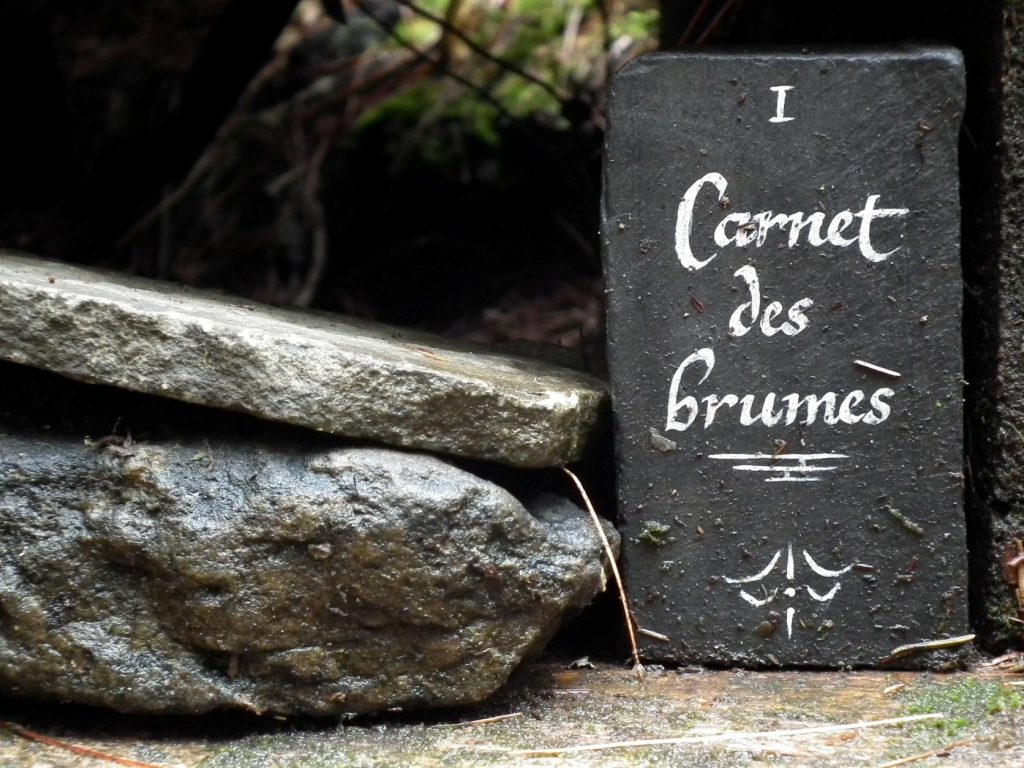 I
Carnet
des
brumès